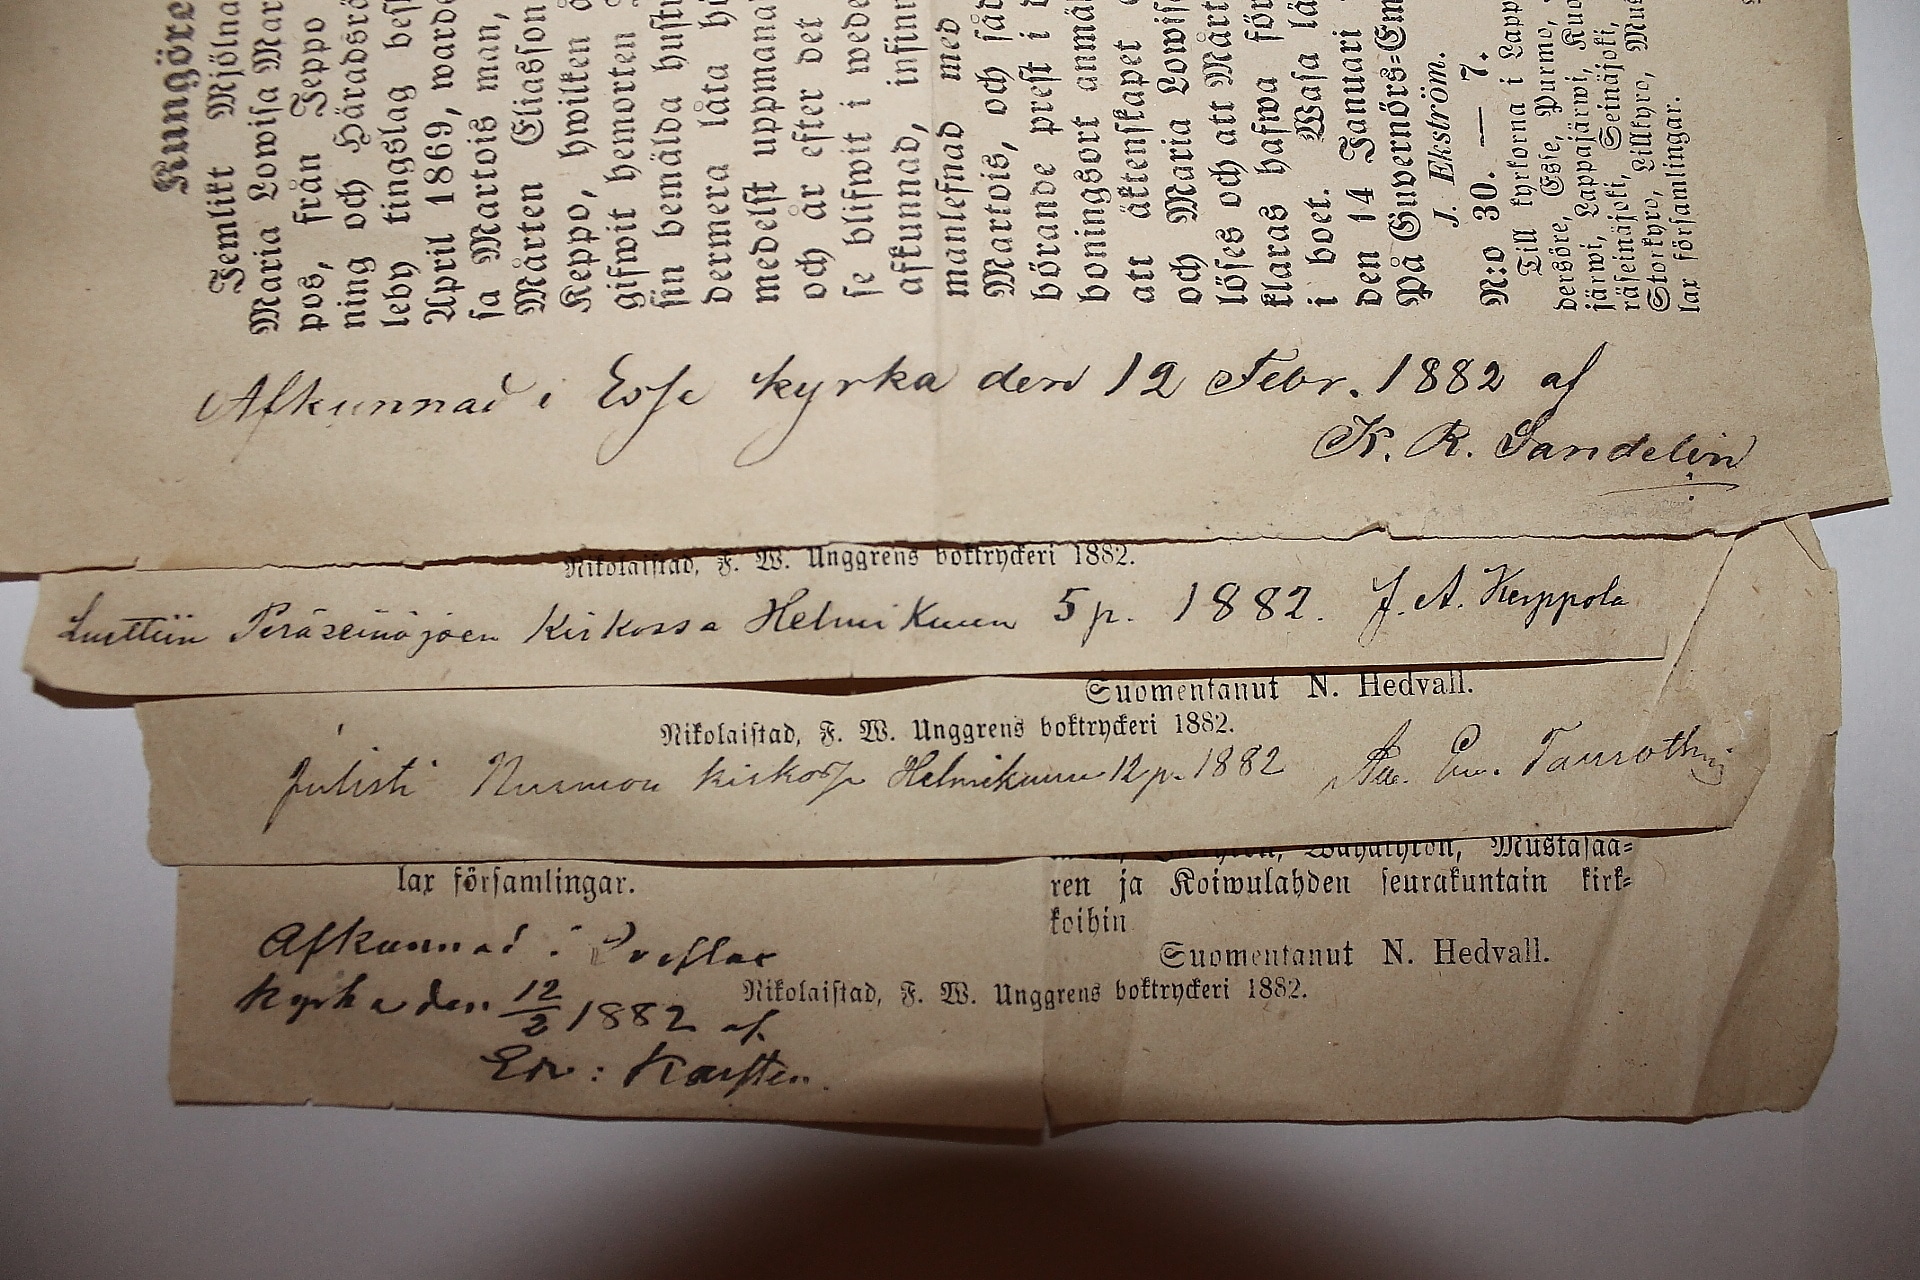 Kungöre
Jemlikt Mjölna
Maria Lowisa Mar
pos, från Jeppo
ning och Häradsrö
leby tingslag besl
April 1869, warde
sa Martois man,
Mårten Eliasson
Keppo, hwilken å
gifwit hemorten
sin bemälda hustu
dermera låta hö
medelst uppmana
och år efter det
se blifwit i wede
afkunnad, infinn
manlefnad med
Martois, och såd
börande prest i d
boningsort anmäl
att äktenskapet
och Maria Lowisa
löses och att Mårt
klaras hafwa för
i boet. Wasa lä
den 14 Januari
På Guvernörs-Em
J. Ekström.
N:o 30. — 7.
Till kyrkorna i Lapp
dersöre, Esse, Purmo,
järwi, Lappajärwi, Kuo
räseinäjoki, Seinäjoki,
Storkyro, Lillkyro, Mus
lax församlingar.
Afkunnad i Esse kyrka den 12 Febr. 1882 af
K. R. Sandelin
Nikolaistad, F. W. Unggrens boktryckeri 1882.
Luettiin Peräseinäjoen Kirkossa Helmi Kuun 5 p. 1882. J. A. Kerppola
Suomentanut N. Hedvall.
Nikolaistad, F. W. Unggrens boktryckeri 1882.
julisti Nurmon kirkossa Helmikuun 12 p. 1882
Mustasaa-
lax församlingar.
ren ja Koiwulahden seurakuntain kirk-
koihin
Afkunnad i
Suomentanut N. Hedvall.
kyrka den 12/2 1882 af
Nikolaistad, F. W. Unggrens boktryckeri 1882.
Edv: Karsten.